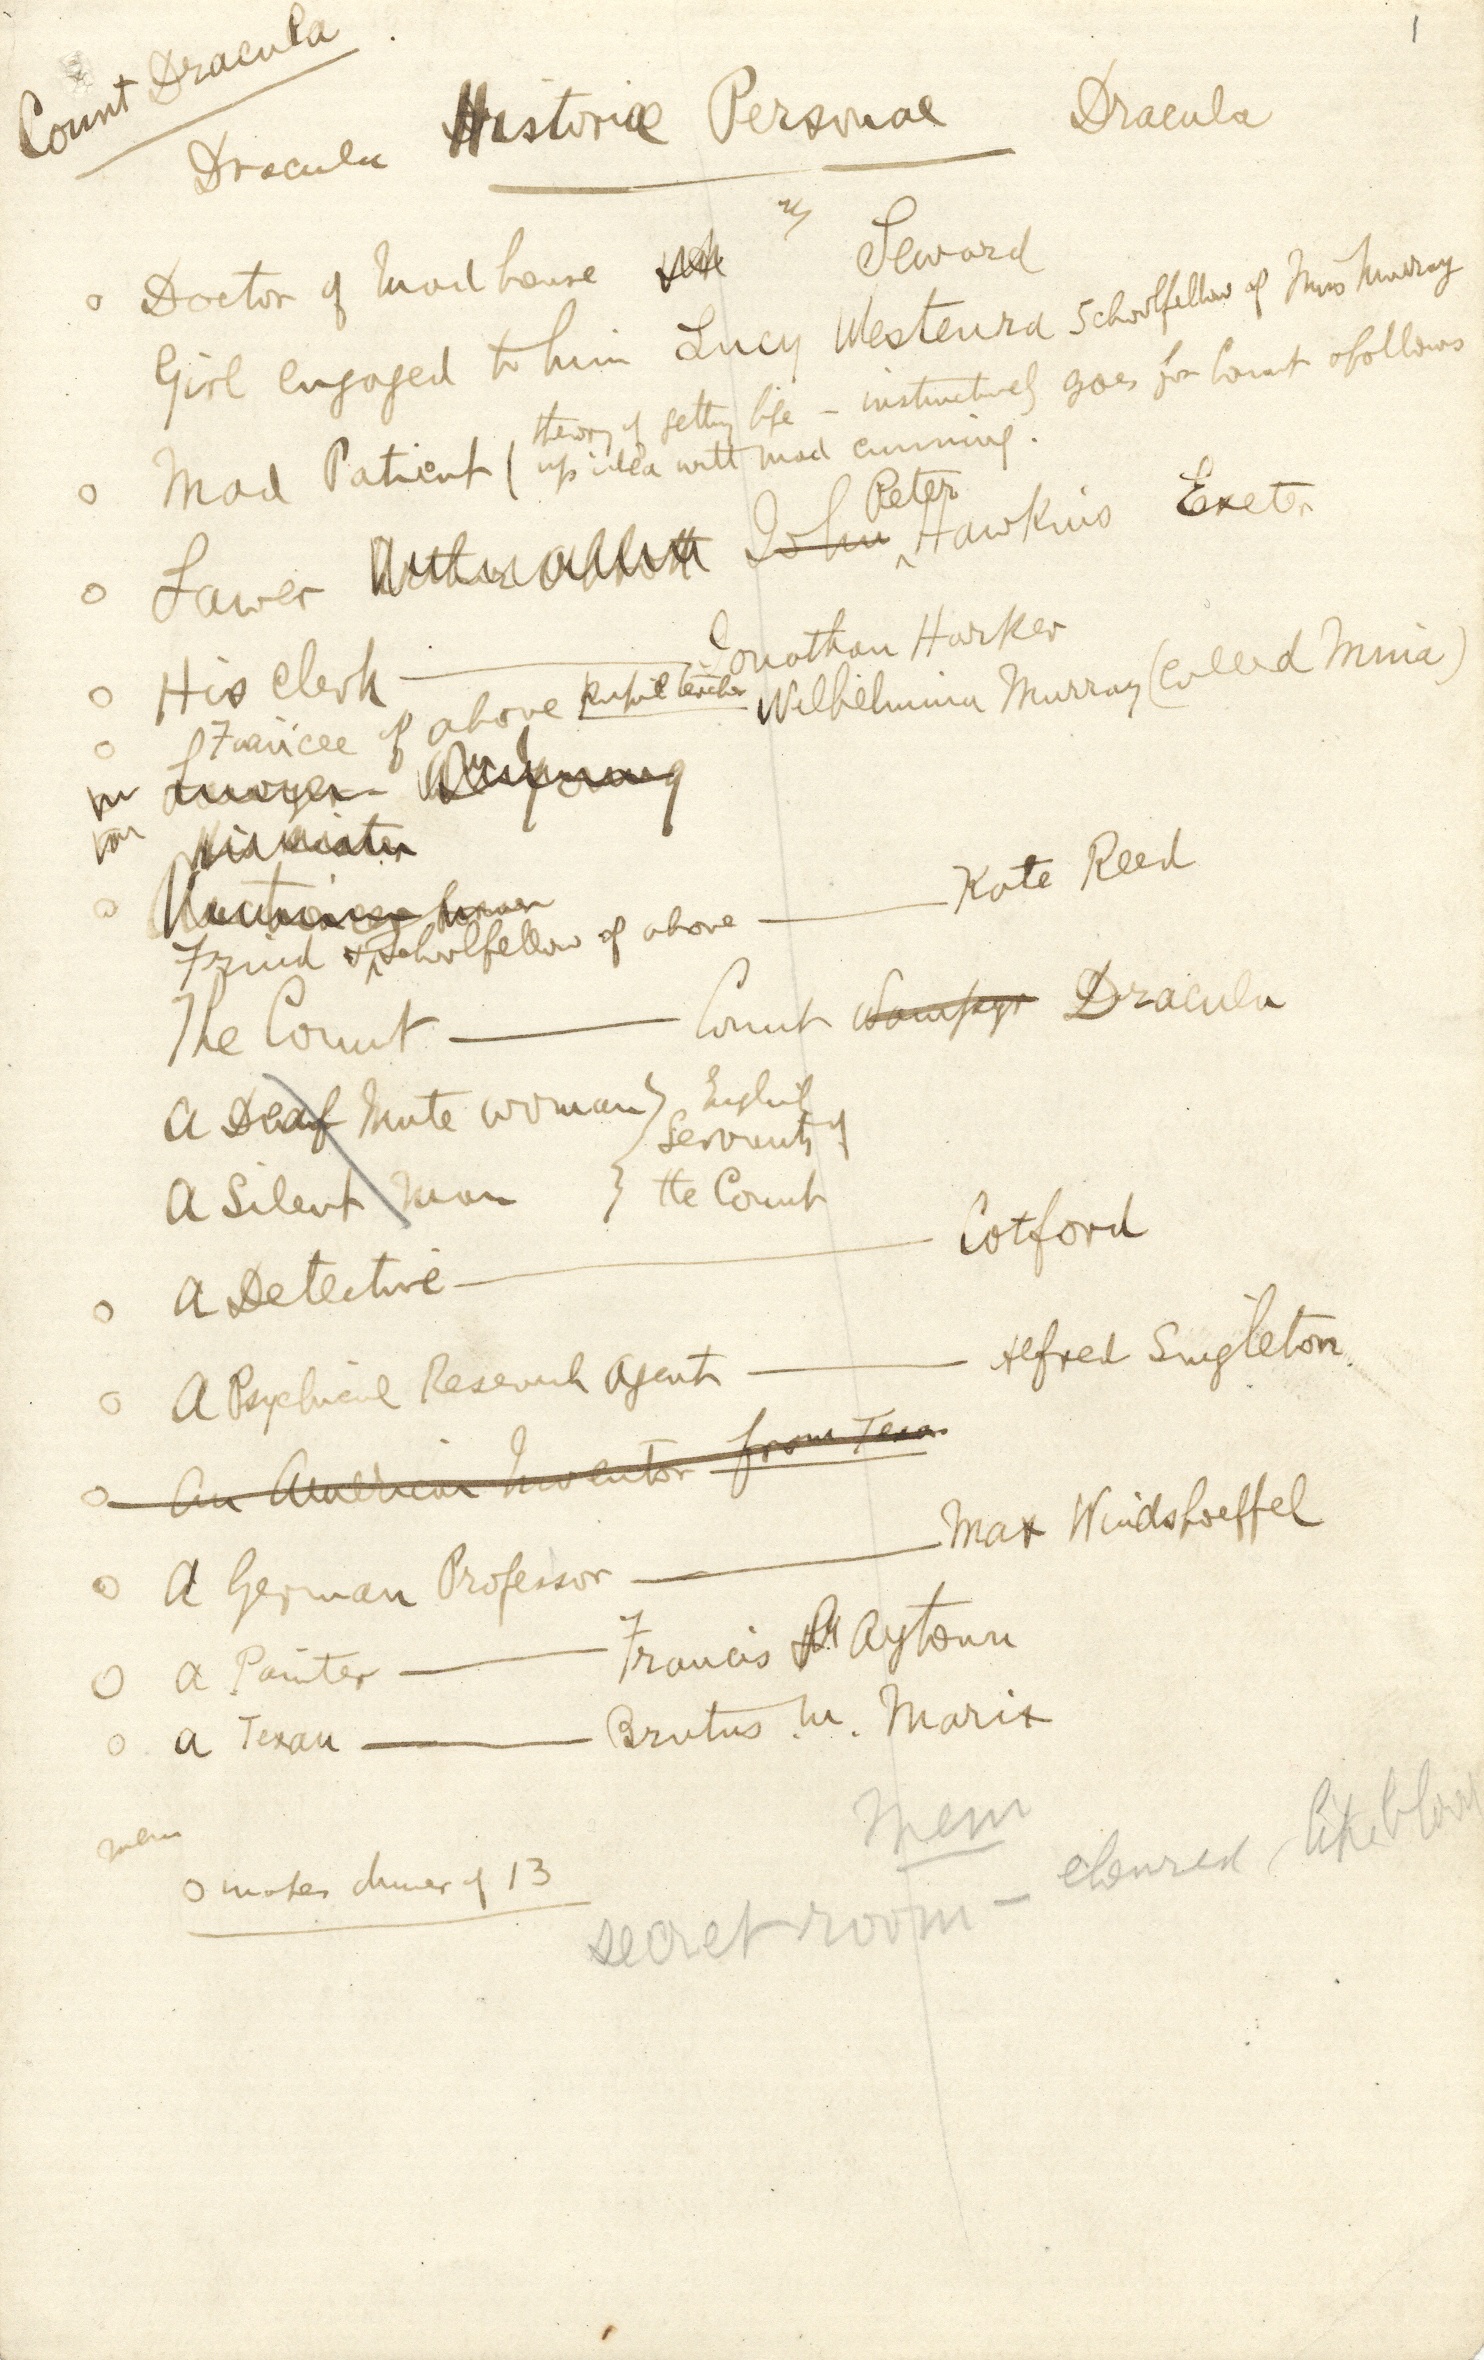 1
Count Dracula
Dracula Historiæ Personae Dracula
Doctor of Mad house Seward
Girl engaged to him Lucy Westenra Schoolfellow of Miss Murray
Mad Patient (theory of getting life – instinctively goes for Count & follows
up idea with mad cunning.
Lawer Arthur Abbott John Peter Hawkins Exeter
His clerk — Jonathan Harker
Fiancee of above pupil teacher Wilhelmina Murray (called Mina)
Lawyer
His sister
Friend & Schoolfellow of above — Kate Reed
The Count — Count Wampyr Dracula
A Deaf Mute woman } English
Servants of
A Silent Man } the Count
A Detective — Cotford
A Psychical Research Agent — Alfred Singleton
An American Inventor from Texas
A German Professor — Max Windshoeffel
A Painter — Francis Aytown
A Texan — Brutus M. Marix
Mem
mem
secret room – coloured like blood